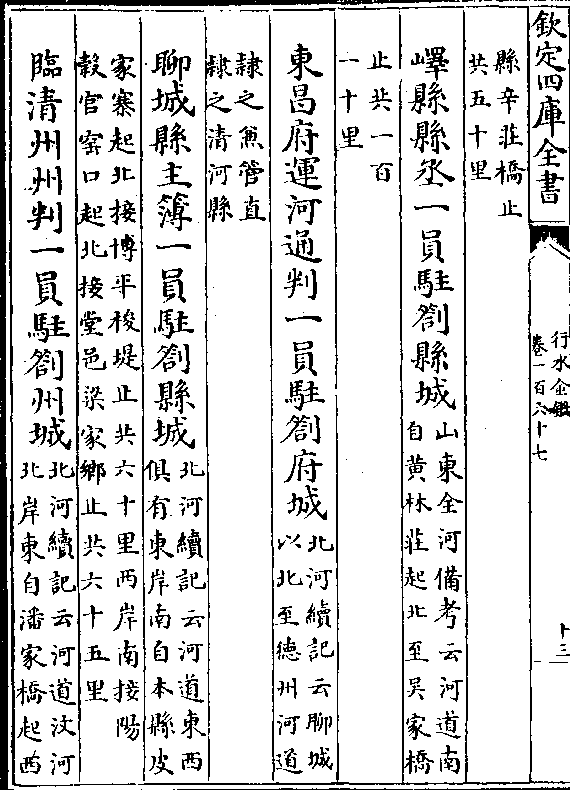 欽定四庫全書
行水金鑑
卷一百六十七
十三
縣辛莊橋止
共五十里
嶧縣縣丞一員駐劄縣城
山東全河備考云河道南
自黄林莊起北至吳家橋
止共一百
一十里
東昌府運河通判一員駐劄府城
北河續記云聊城
以北至德州河道
隸之兼管直
隸之清河縣
聊城縣主簿一員駐劄縣城
北河續記云河道東西
俱有東岸南自本縣皮
家寨起北接博平梭堤止共六十里西岸南接陽
穀官窑口起北接堂邑梁家鄉止共六十五里
臨清州州判一員駐劄州城
北河續記云河道汶河
北岸東自潘家橋起西